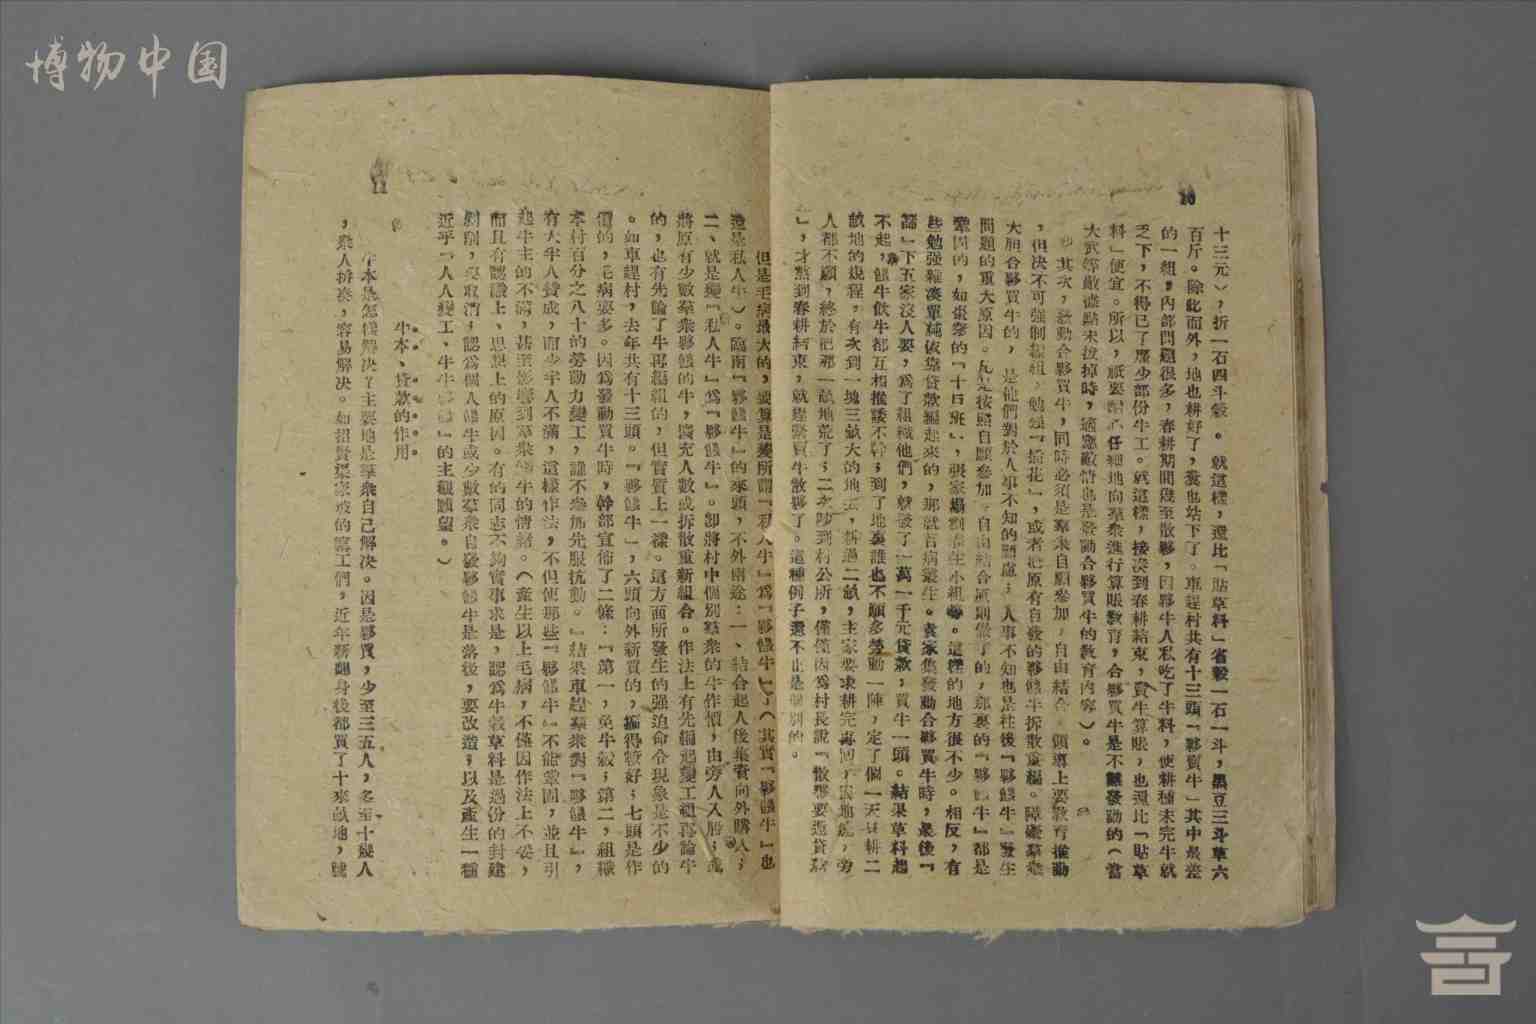 博物中国
10
十三元），折一石四斗穀。就這樣，還比「貼草料」省穀一石一斗，黑豆三斗草六
百斤。除此而外，地也耕好了，糞也站下了。車趕村共有十三頭「夥買牛」其中最差
的一組，內部問題很多，春耕期間幾至散夥，因夥牛人私吃了牛料，使耕種未完牛就
乏下，不得已了麼少部份牛工。就這樣，接湊到春耕結束，賣牛算賬，也還比「貼草
料」便宜。所以，祇要細心仔細地向羣衆進行算賬教育，合夥買牛是不難發動的（當
大武等敵據點未拔掉時，適應敵情也是發動合夥買牛的教育內容）。
其次，發動合夥買牛，同時必須是羣衆自願參加，自由結合，領導上要教育推動
，但決不可強制編組，勉強「插花」，或者把原有自發的夥餵牛拆散重編。障礙羣衆
大胆合夥買牛的，是他們對於人事不知的顧慮；人事不知也是往後「夥餵牛」發生
問題的重大原因。凡是按照自願參加，自由結合原則做了的，那裏的「夥餵牛」都是
鞏固的，如棗窊的「十日班」，張家塌劉春生小組等。這樣的地方很不少。相反，有
些勉強雜湊單純依靠貸款編起來的，那就百病叢生。袁家集發動合夥買牛時，最後「
𦂳」下五家沒人要，爲了組織他們，就發了一萬一千元貸款，買牛一頭。結果草料起
不起，餵牛飲牛都互相推諉不幹；到了地裏誰也不願多勞動一陣，定了個一天只耕二
畝地的規程，有次到一塊三畝大的地去，耕過二畝，主家要求耕完再回，因地遠，旁
人都不願，終於把那一畝地荒了；二次吵到村公所，僅僅因爲村長說「散夥要還貸款
」，才熬到春耕結束，就趕緊賣牛散夥了。這種例子還不止是個別的。
11
但是毛病最大的，要算是變所謂「私人牛」爲「夥餵牛」，（其實「夥餵牛」也
還是私人牛）。臨南「夥餵牛」的來頭，不外兩途：一、結合起人後集資向外購入；
二、就是變「私人牛」爲「夥餵牛」。卽將村中個別羣衆的牛作價，由旁人入股；或
將原有少數羣衆夥餵的牛，擴充人數或拆散重新組合。作法上有先編起變工組再論牛
的，也有先論了牛再編組的，但實質上一樣。這方面所發生的强迫命令現象是不少的
。如車趕村，去年共有十三頭。「夥餵牛」，六頭向外新買的，編得較好；七頭是作
價的，毛病要多。因爲發動買牛時，幹部宣佈了二條：「第一，免牛穀；第二，組織
本村百分之八十的勞動力變工，誰不參加先服抗勤。」結果車趕羣衆對「夥餵牛」，
有大半人贊成，而少半人不滿，這樣作法，不但使那些「夥餵牛」不能鞏固，並且引
起牛主的不滿，甚至影響到羣衆餵牛的情緒。（產生以上毛病，不僅因作法上不妥，
而且有認識上、思想上的原因。有的同志不夠實事求是，認爲牛穀草料是過份的封建
剝削，要取消；認爲個人餵牛或少數羣衆自發夥餵牛是落後，要改造；以及產生一種
近乎「人人變工、牛牛夥餵」的主觀願望。）
牛本、貸款的作用
牛本是怎樣解決？主要地是羣衆自己解決。因是夥買，少至三五人，多至十幾人
，衆人拚湊，容易解決。如招賢渠家坡的窰工們，近年新翻身後都買了十來畝地，號